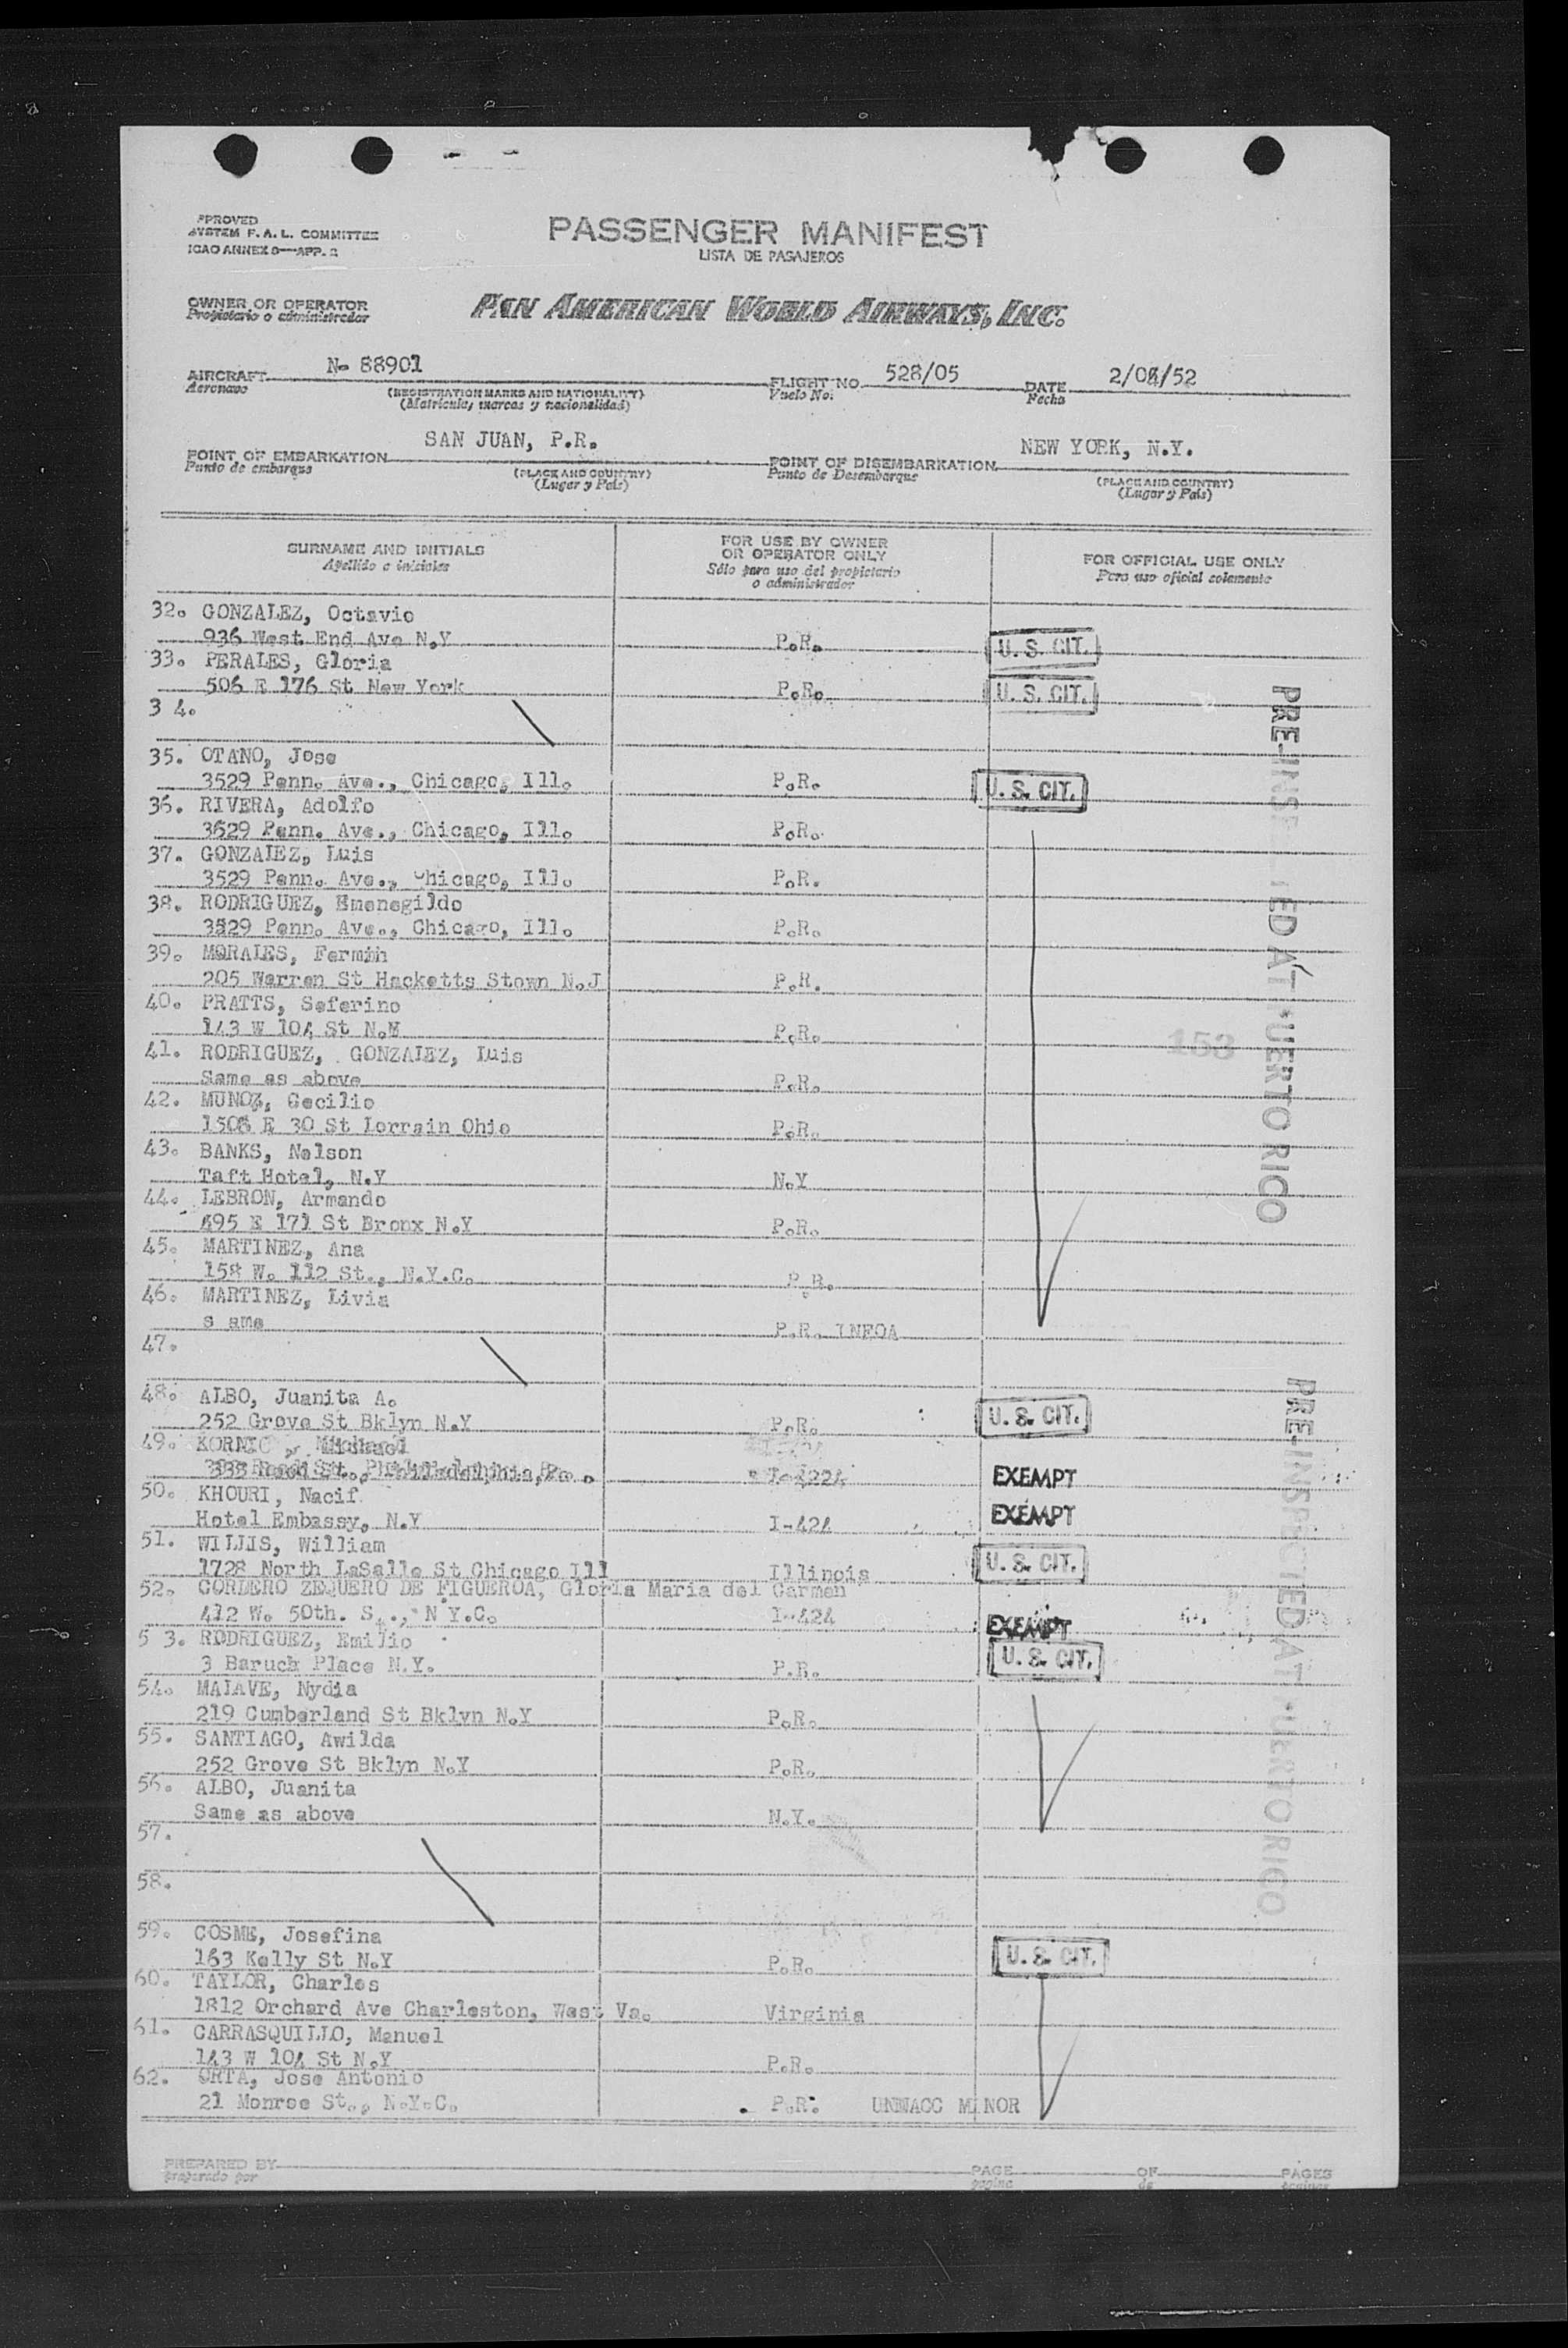 PPROVED
SYSTEM F. A. L. COMMITTEE
ICAO ANNEX 9—APP. 2
PASSENGER MANIFEST
LISTA DE PASAJEROS
OWNER OR OPERATOR
Propietario o administrador
PAN AMERICAN WORLD AIRWAYS, INC.
AIRCRAFT N- 88901 FLIGHT NO. 528/05 DATE 2/08/52
Aeronave (REGISTRATION MARKS AND NATIONALITY) Vuelo No. Fecha
(Matrícula, marcas y nacionalidad)
POINT OF EMBARKATION SAN JUAN, P.R. POINT OF DISEMBARKATION NEW YORK, N.Y.
Punto de embarque (PLACE AND COUNTRY) Punto de Desembarque (PLACE AND COUNTRY)
(Lugar y País) (Lugar y País)
SURNAME AND INITIALS FOR USE BY OWNER OR OPERATOR ONLY FOR OFFICIAL USE ONLY
Apellido e iniciales Sólo para uso del propietario o administrador Para uso oficial solamente
32. GONZALEZ, Octavio
936 West End Ave N.Y P.R. U. S. CIT.
33. PERALES, Gloria
506 E 176 St New York P.R. U. S. CIT.
3 4.
35. OTANO, Jose
3529 Penn. Ave., Chicago, Ill. P.R. U. S. CIT.
36. RIVERA, Adolfo
3629 Penn. Ave., Chicago, Ill. P.R.
37. GONZALEZ, Luis
3529 Penn. Ave., Chicago, Ill. P.R.
38. RODRIGUEZ, Emenegildo
3529 Penn. Ave., Chicago, Ill. P.R.
39. MORALES, Fermin
205 Warren St Hacketts Stown N.J P.R.
40. PRATTS, Seferino
143 W 104 St N.Y P.R.
41. RODRIGUEZ, GONZALEZ, Luis
Same as above P.R.
42. MUNOZ, Cecilio
1508 E 30 St Lorrain Ohio P.R.
43. BANKS, Nelson
Taft Hotel, N.Y N.Y
44. LEBRON, Armando
495 E 171 St Bronx N.Y P.R.
45. MARTINEZ, Ana
158 W. 112 St., N.Y.C. P.R.
46. MARTINEZ, Livia
s ame P.R. INFOA
47.
48. ALBO, Juanita A.
252 Grove St Bklyn N.Y P.R. U. S. CIT.
49. Michael
EXEMPT
50. KHOURI, Nacif
Hotel Embassy, N.Y I-424 EXEMPT
51. WILLIS, William
1728 North LaSalle St Chicago Ill Illinois U. S. CIT.
52. CORDERO ZEQUERO DE FIGUEROA, Gloria Maria del Carmen
412 W. 50th. S.., N Y.C. I-424 EXEMPT
5 3. RODRIGUEZ, Emilio
3 Baruch Place N.Y. P.R. U. S. CIT.
54. MALAVE, Nydia
219 Cumberland St Bklyn N.Y P.R.
55. SANTIAGO, Awilda
252 Grove St Bklyn N.Y P.R.
56. ALBO, Juanita
Same as above N.Y.
57.
58.
59. COSME, Josefina
163 Kelly St N.Y P.R. U. S. CIT.
60. TAYLOR, Charles
1812 Orchard Ave Charleston, West Va. Virginia
61. CARRASQUILLO, Manuel
143 W 104 St N.Y P.R.
62. ORTA, Jose Antonio
21 Monroe St., N.Y.C. P.R. UNNACC MINOR
PRE-INSP TED AT PUERTO RICO
153
PRE-INSPECTED AT PUERTO RICO
PREPARED BY PAGE OF PAGES
preparado por página de páginas